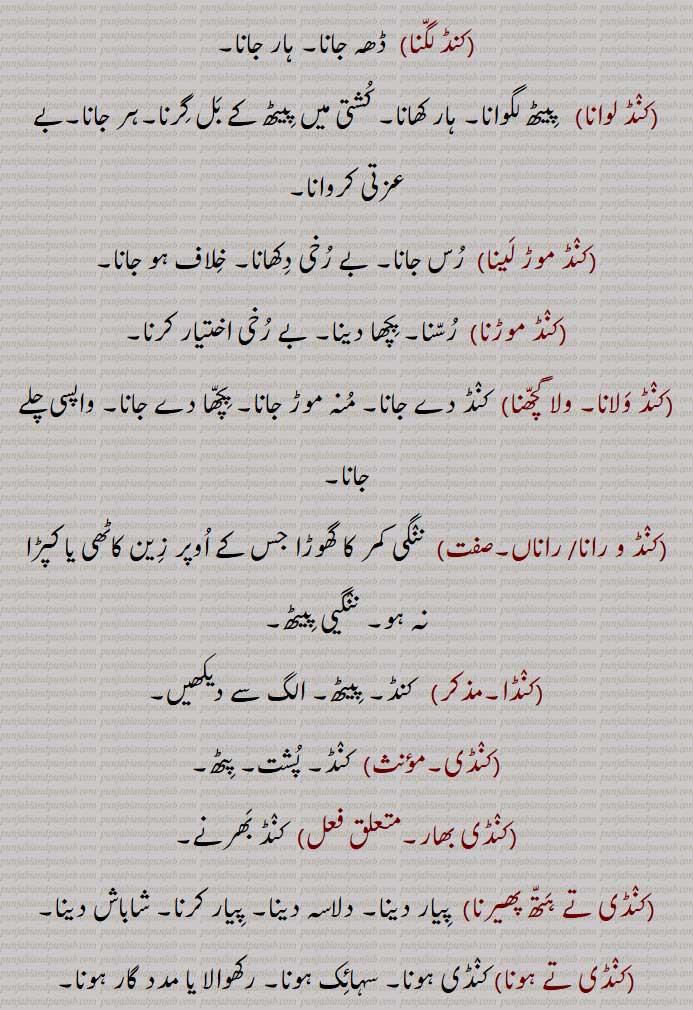 (کنڈ لگّنا) ڈھہ جانا۔ ہار جانا۔
(کنْڈ لوانا) پِیٹھ لگوانا۔ ہار کھانا۔ کُشتی میں پِیٹھ کے بَل گِرنا۔ ہر جانا۔ بے
عزتی کروانا۔
(کنْڈ موڑ لَینا) رُس جانا۔ بے رُخی دِکھانا۔ خِلاف ہو جانا۔
(کنْڈ موڑنا) رُسّنا۔ پِچھا دینا۔ بے رُخی اختیار کرنا۔
(کنْڈ وَلانا۔ ولا گچّھنا) کنْڈ دے جانا۔ مُنہ موڑ جانا۔ پِچّھا دے جانا۔ واپسی چلے
جانا۔
(کنْڈ و رانا/ راناں۔صفت) ننْگی کمر کا گھوڑا جس کے اُوپر زِین کاٹھی یا کپڑا
نہ ہو۔ ننْگیی پِیٹھ۔
(کنْڈا۔مذکر) کنڈ۔ پِیٹھ۔ الگ سے دیکھیں۔
(کنْڈی۔مؤنث) کنْڈ۔ پُشت۔ پِٹھ۔
(کنْڈی بھار۔متعلق فعل) کنْڈ بَھرنے۔
(کنْڈی تے ہَتّھ پھیرنا) پِیار دینا۔ دلاسہ دینا۔ پِیار کرنا۔ شاباش دینا۔
(کنْڈی تے ہونا) کنْڈی ہونا۔ سہائِک ہونا۔ رکھوالا یا مدد گار ہونا۔